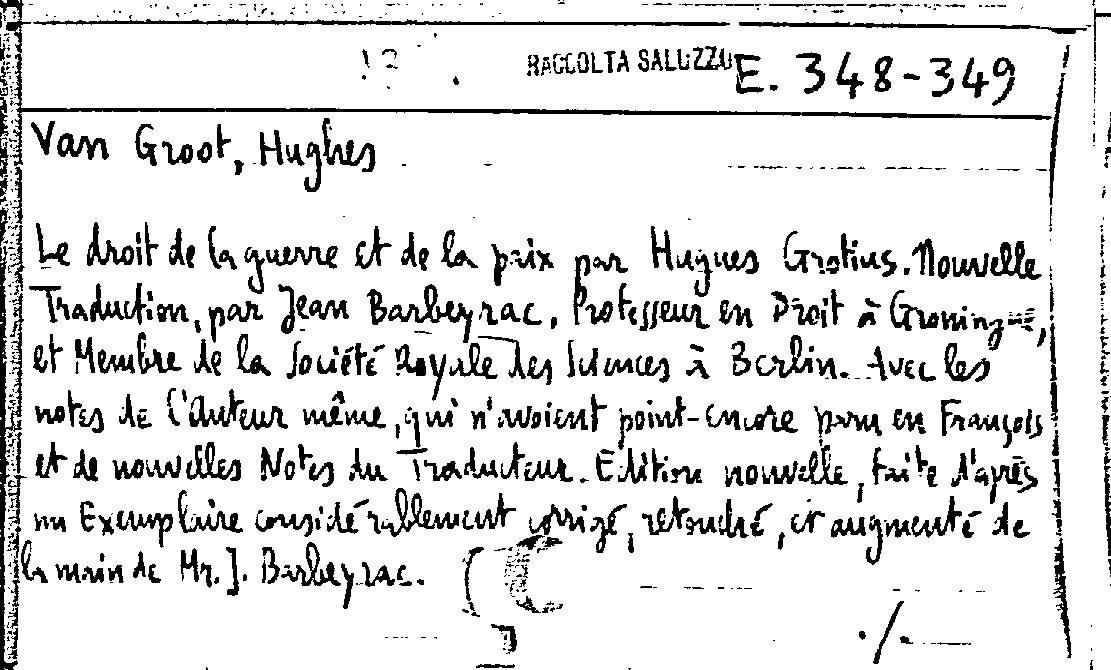 RACCOLTA SALUZZO E. 348-349
Van Groot, Hughes
Le droit de la guerre et de la paix par Hugues Grotius. Nouvelle
Traduction, par Jean Barbeyrac, Professeur en Droit à Groningue,
et Membre de la Société Royale des Sciences à Berlin. Avec les
notes de l'Auteur même, qui n'avoient point-encore paru en François
et de nouvelles Notes du Traducteur. Edition nouvelle, faite d'après
un Exemplaire considérablement corrigé, retouché, et augmenté de
la main de Mr. J. Barbeyrac.
./.